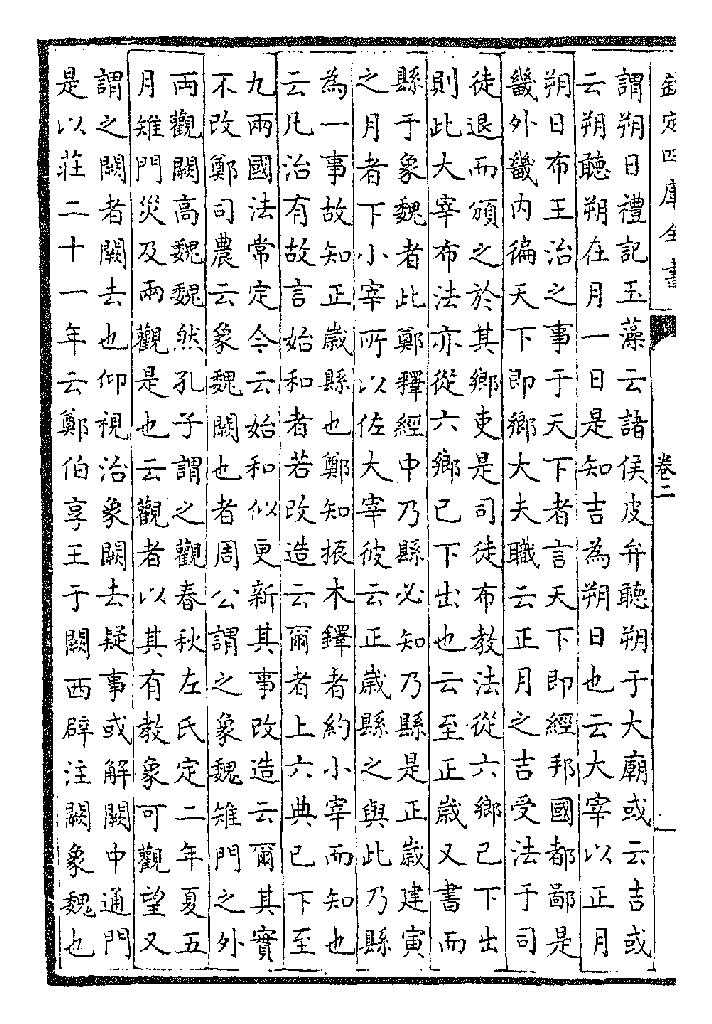 欽定四庫全書
卷二
謂朔日禮記玉藻云諸侯皮弁聽朔于大廟或云吉或
云朔聽朔在月一日是知吉為朔日也云大宰以正月
朔日布王治之事于天下者言天下即經邦國都鄙是
畿外畿內徧天下即鄉大夫職云正月之吉受法于司
徒退而頒之於其鄉吏是司徒布教法從六鄉已下出
則此大宰布法亦從六鄉已下出也云至正歲又書而
縣于象魏者此鄭釋經中乃縣必知乃縣是正歲建寅
之月者下小宰所以佐大宰彼云正歲縣之與此乃縣
為一事故知正歲縣也鄭知振木鐸者約小宰而知也
云凡治有故言始和者若改造云爾者上六典已下至
九兩國法常定今云始和似更新其事改造云爾其實
不改鄭司農云象魏闕也者周公謂之象魏雉門之外
兩觀闕高魏魏然孔子謂之觀春秋左氏定二年夏五
月雉門災及兩觀是也云觀者以其有教象可觀望又
謂之闕者闕去也仰視治象闕去疑事或解闕中通門
是以莊二十一年云鄭伯享王于闕西辟注闕象魏也